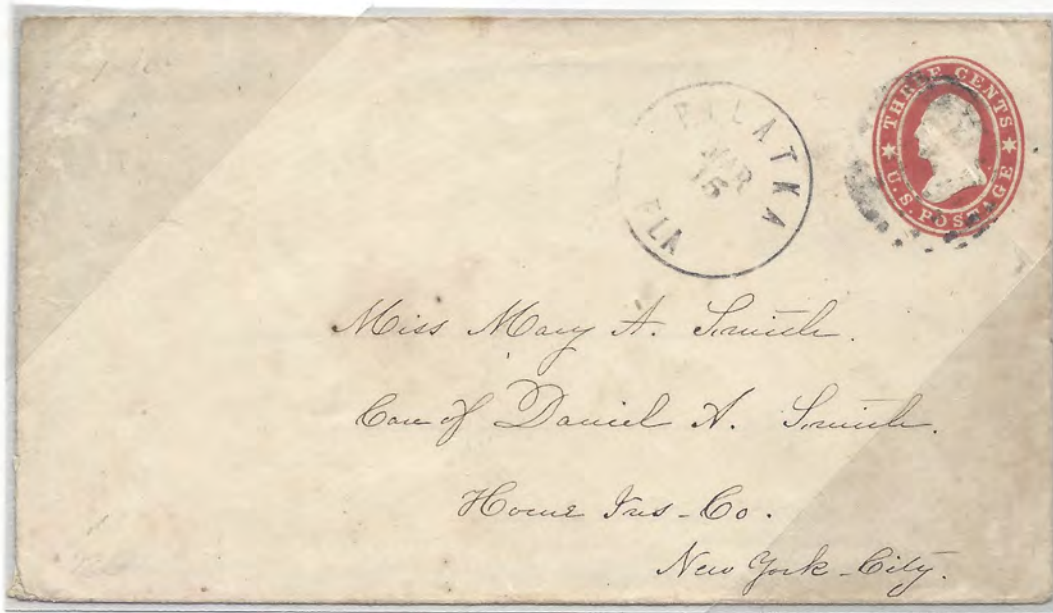 PILATKA
MAR
15
FLA
THREE CENTS
U.S. POSTAGE
Miss Mary A. Smith.
Care of Daniel A. Smith.
Home Ins - Co.
New York - City.